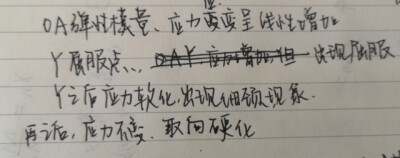 OA弹性模量、应力应变呈线性增加
Y屈服点、、 出现屈服
Y之后应力软化,出现细颈现象.
再之后,应力不变.取向硬化